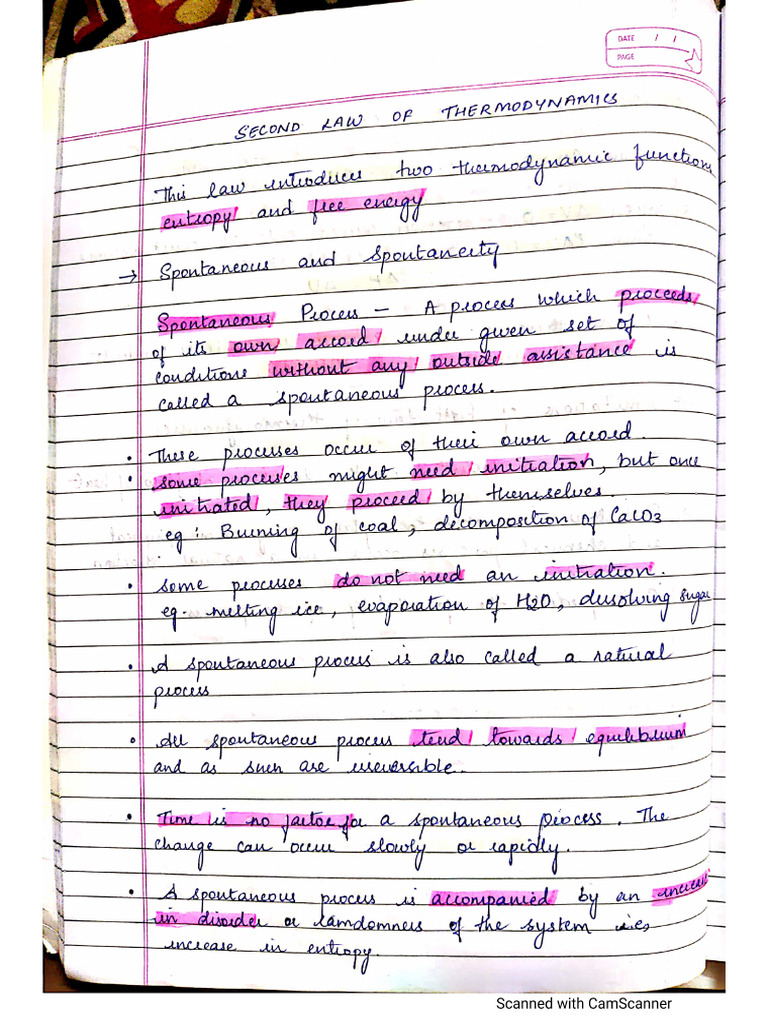 DATE / /
PAGE
SECOND LAW OF THERMODYNAMICS
This law introduces two thermodynamic functions
entropy and free energy
→ Spontaneous and Spontaneity
Spontaneous Process - A process which proceeds
of its own accord under given set of
conditions without any outside assistance is
called a spontaneous process.
• These processes occur of their own accord.
• some processes might need initiation, but once
initiated, they proceed by themselves.
eg: Burning of coal, decomposition of CaCO3
• some processes do not need an initiation.
eg. melting ice, evaporation of H2O, dissolving sugar
• A spontaneous process is also called a natural
process
• All spontaneous process tend towards equilibrium
and as such are irreversible.
• Time is no factor for a spontaneous process. The
change can occur slowly or rapidly.
• A spontaneous process is accompanied by an increase
in disorder or randomness of the system i.e,
increase in entropy.
Scanned with CamScanner